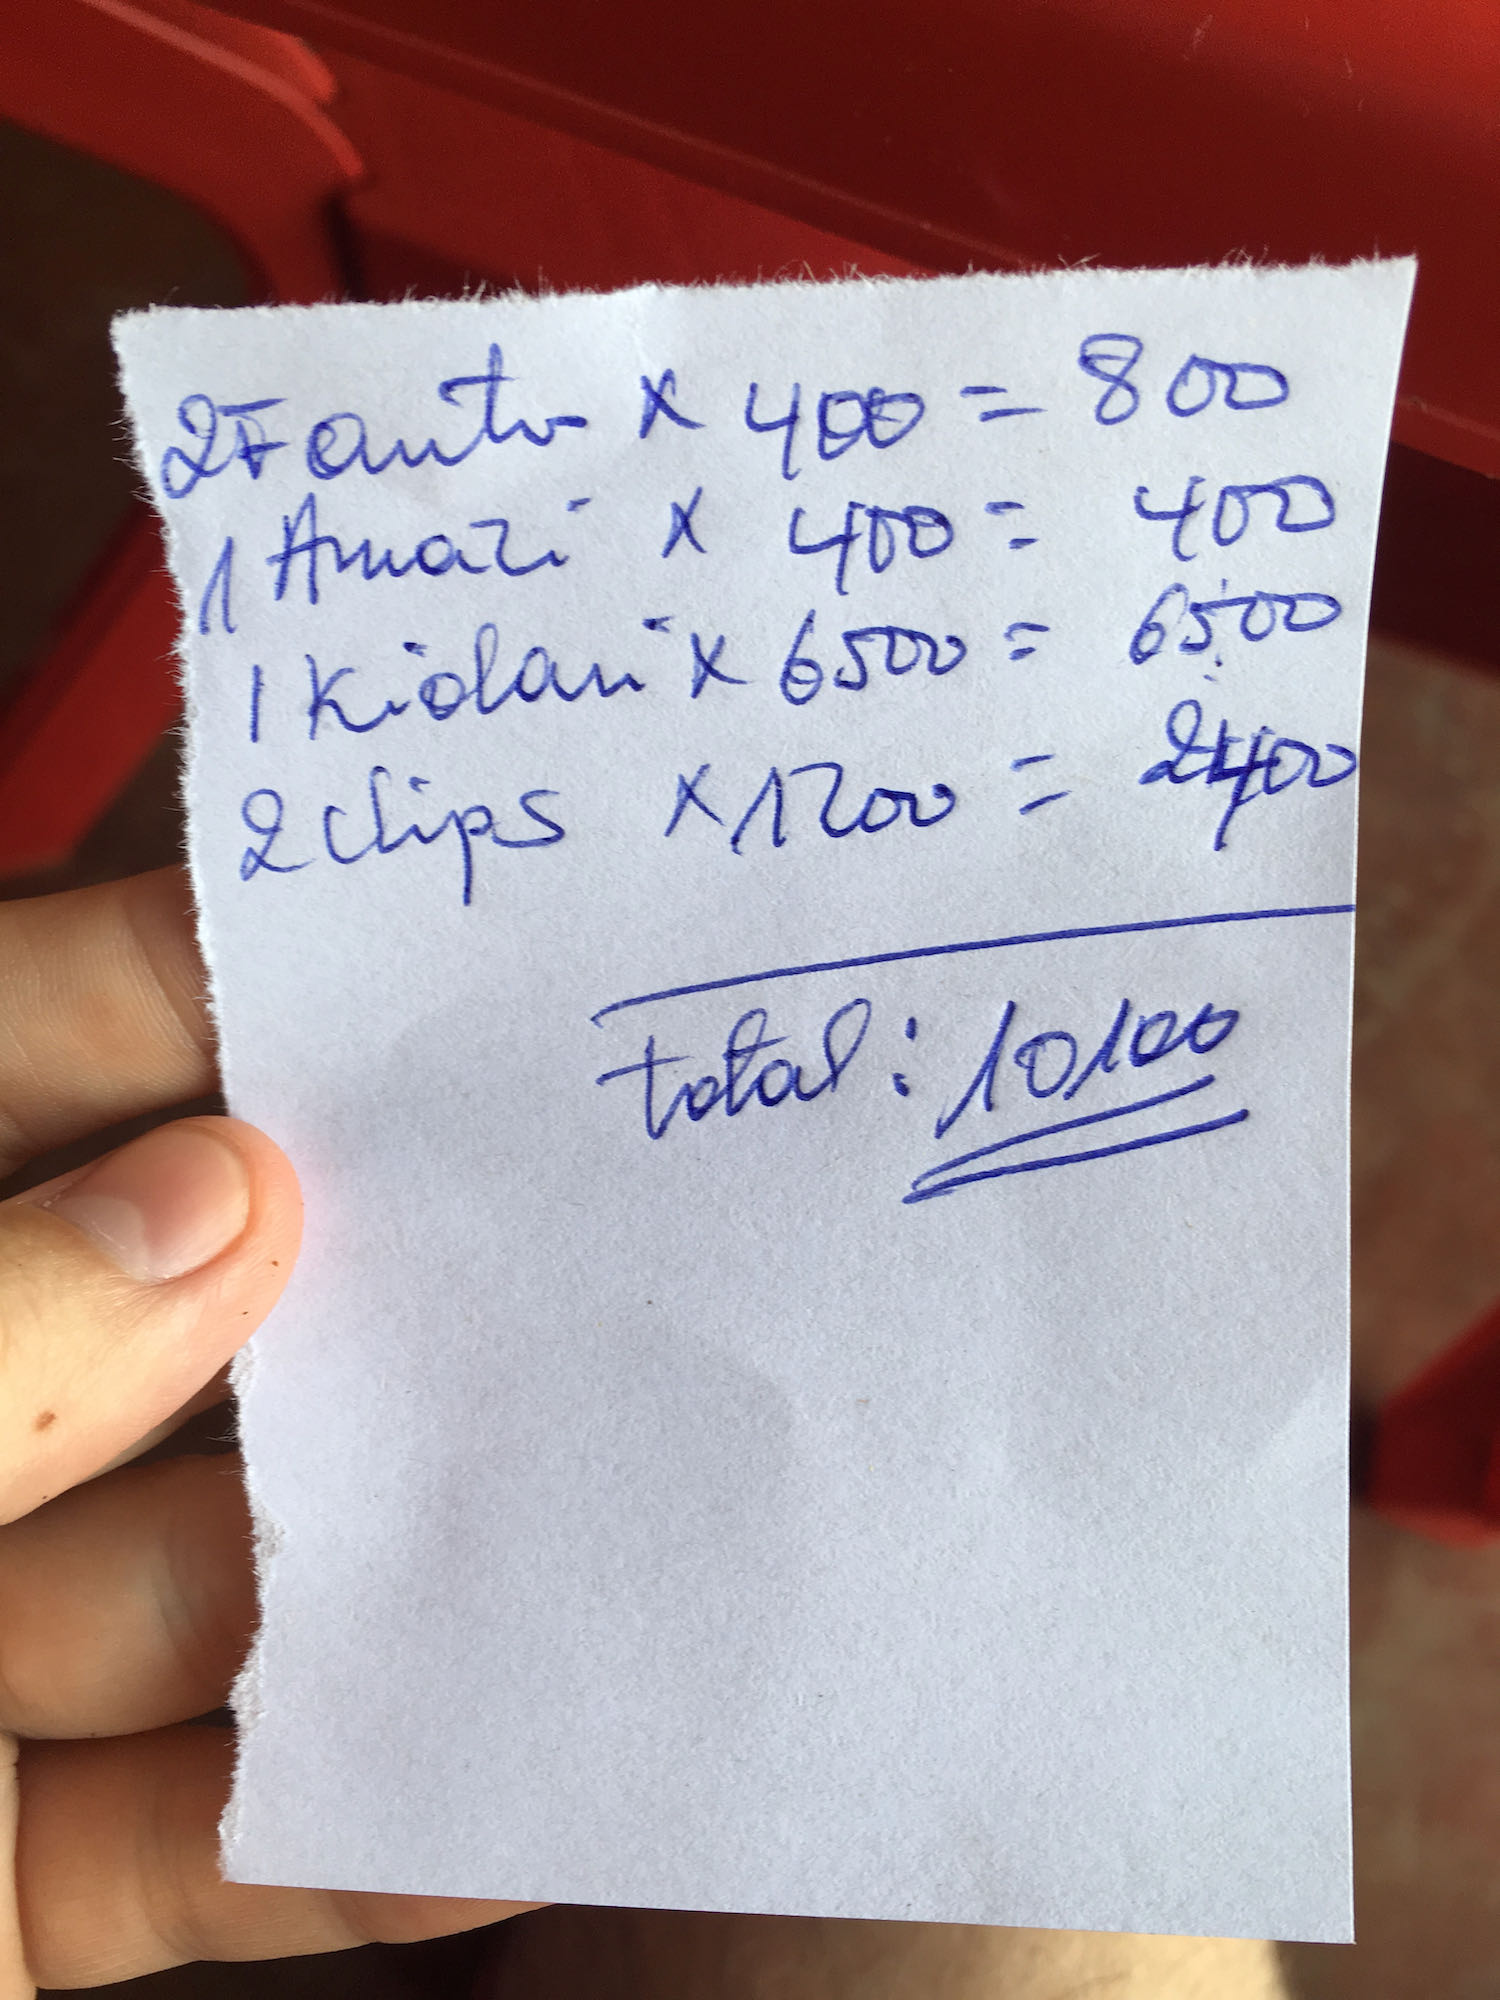 2 Fanta x 400 = 800
1 Amazi x 400 = 400
1 Kidari x 6500 = 6500
2 chips x 1200 = 2400
total: 10100